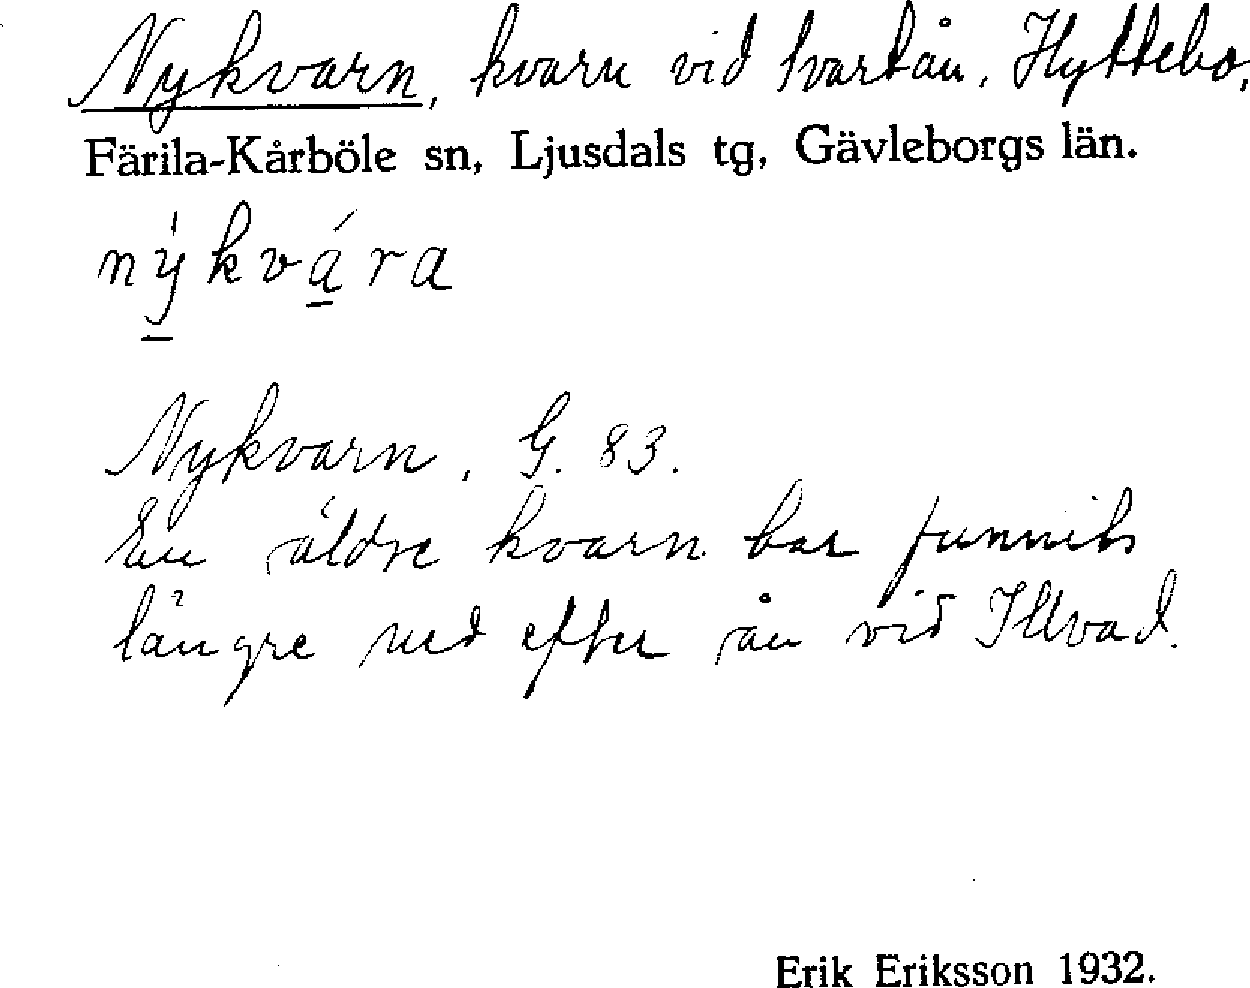 Nykvarn, kvarn vid Svartån, Hyttebo,
Färila-Kårböle sn, Ljusdals tg, Gävleborgs län.
nýkvára
Nykvarn, G. 83.
En äldre kvarn har funnits
längre ned efter ån vid Illvad.
Erik Eriksson 1932.